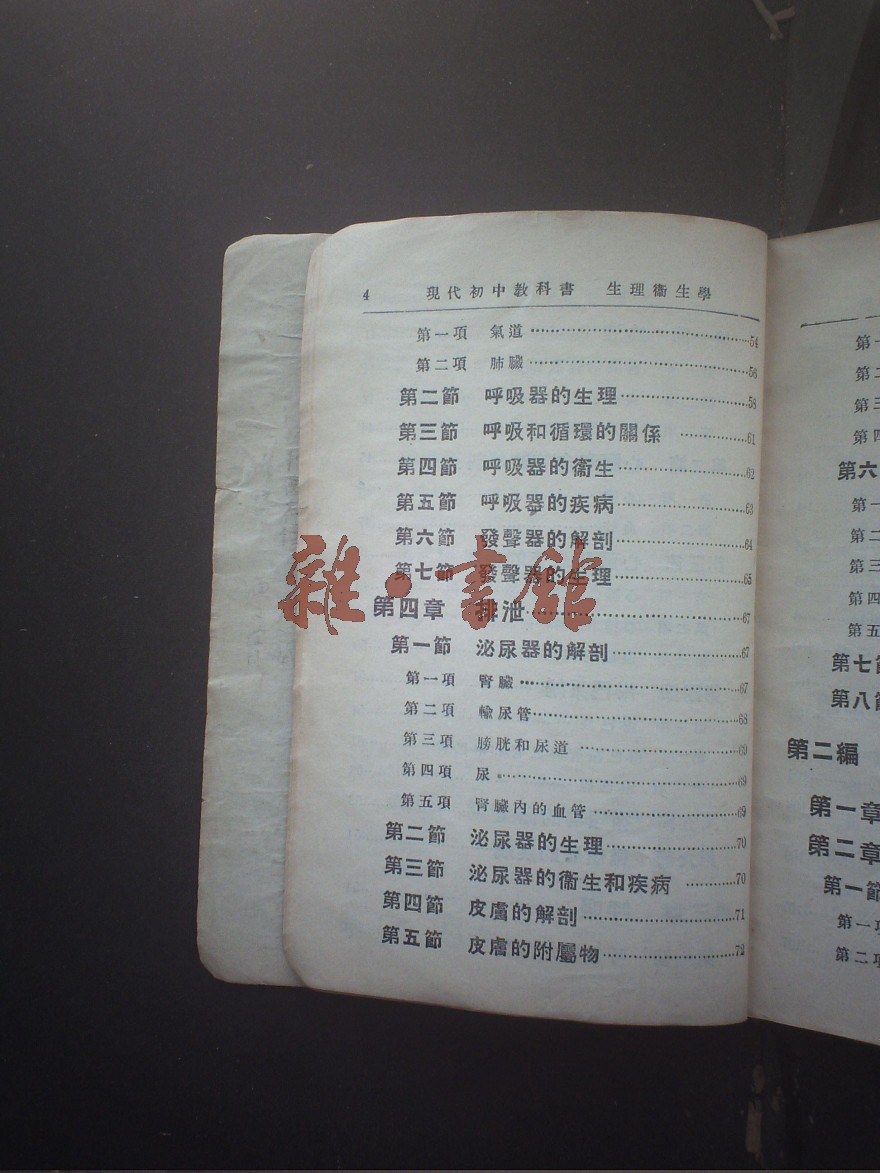 4 現代初中教科書 生理衞生學
第一項 氣道 54
第二項 肺臟 56
第二節 呼吸器的生理 58
第三節 呼吸和循環的關係 61
第四節 呼吸器的衞生 62
第五節 呼吸器的疾病 63
第六節 發聲器的解剖 64
第七節 發聲器的生理 65
第四章 排泄 67
第一節 泌尿器的解剖 67
第一項 腎臟 67
第二項 輸尿管 68
第三項 膀胱和尿道 69
第四項 尿 69
第五項 腎臟內的血管 69
第二節 泌尿器的生理 70
第三節 泌尿器的衞生和疾病 70
第四節 皮膚的解剖 71
第五節 皮膚的附屬物 72
雜·書館
第一
第二
第三
第四
第六
第一
第二
第三
第四
第五
第七節
第八節
第二編
第一章
第二章
第一節
第一項
第二項